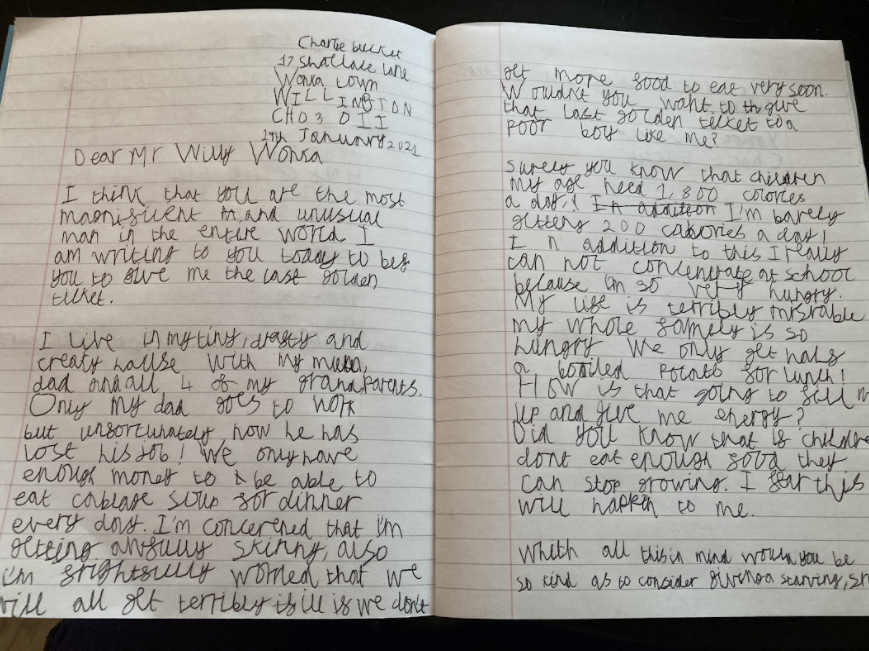 Charlie bucket
17 Shallace lane
Wonka town
WILLINGTON
CHO3 OII
19th January 2021
Dear Mr Willy Wonka
I think that you are the most
magnisicient and unusual
man in the entire world I
am writing to you today to beg
you to give me the last golden
ticket.
I live in my tiny, drasty and
creaty house with my mum,
dad and all 4 of my grandparents.
Only my dad goes to work
but unsortunately now he has
lost his job! We only have
enough money to be able to
eat cabbage soup for dinner
every day. I'm concerned that i'm
getting awfully skinny, also
i'm frightfully worried that we
will all get terribly ill if we don't
get more food to eat very soon.
Wouldn't you want to give
that last golden ticket to a
poor boy like me?
Surely you know that children
my age need 1,800 calories
a day! In addition I'm barely
getting 200 calories a day!
In addition to this I really
can not concentrate at school
because i'm so very hungry.
My life is terribly misrable
my whole famely is so
hungry We only get half
a booiled potato for lunch!
How is that going to fill m
up and give me energy?
Did you know that if childre
dont eat enough food they
can stop growing. I fear this
will happen to me.
Whith all this in mind would you be
so kind as to consider giving a starving, sn